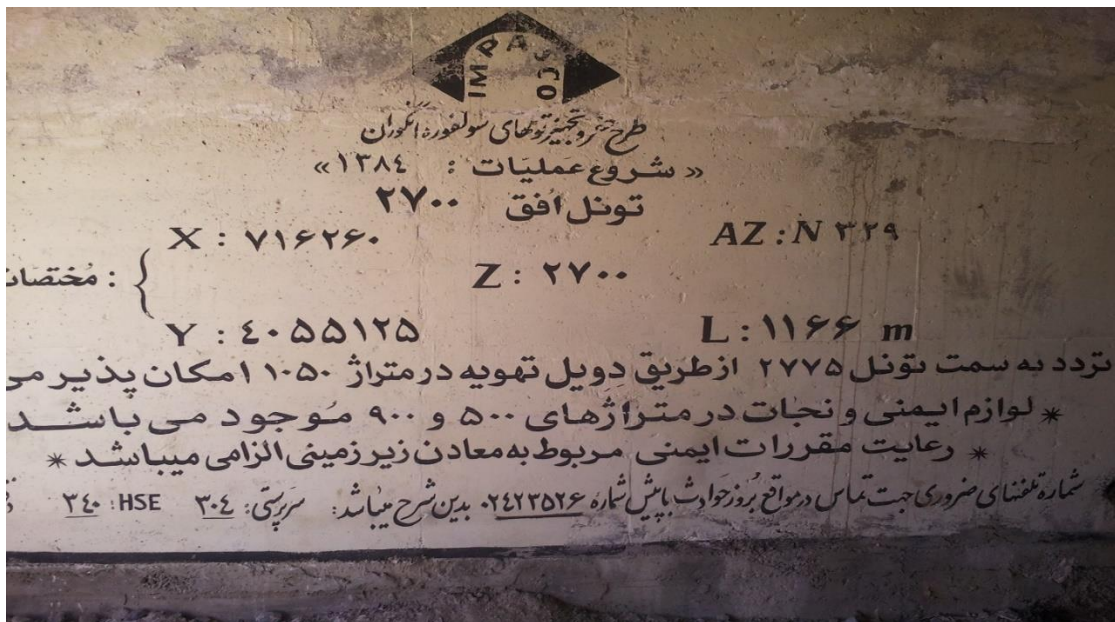 IMPASCO
طرح حفر و تجهیز تونلهای سولفوره انگوران
«شروع عملیات : ۱۳۸٤»
تونل اُفق ۲۷۰۰
X : ۷۱۶۲۶۰ AZ : N ۳۲۹
: مُختصات Z : ۲۷۰۰
Y : ٤۰۵۵۱۲۵ L : ۱۱۶۶ m
تردد به سمت تونل ۲۷۷۵ ازطریق دِویل تهویه درمتراژ ۱۰۵۰ امکان پذیر می
* لوازم ایمنی و نجات در متراژهای ۵۰۰ و ۹۰۰ مُوجود می باشد
* رعایت مقررات ایمنی مربوط به معادن زیرزمینی الزامی میباشد *
شماره تلفنهای ضروری جهت تماس درمواقع بُروز حوادث باپیش شماره ۰۲٤۲۳۵۲۶ بدین شرح میباشد: سرپرستی: ۳۰٤ HSE: ۳٤۰